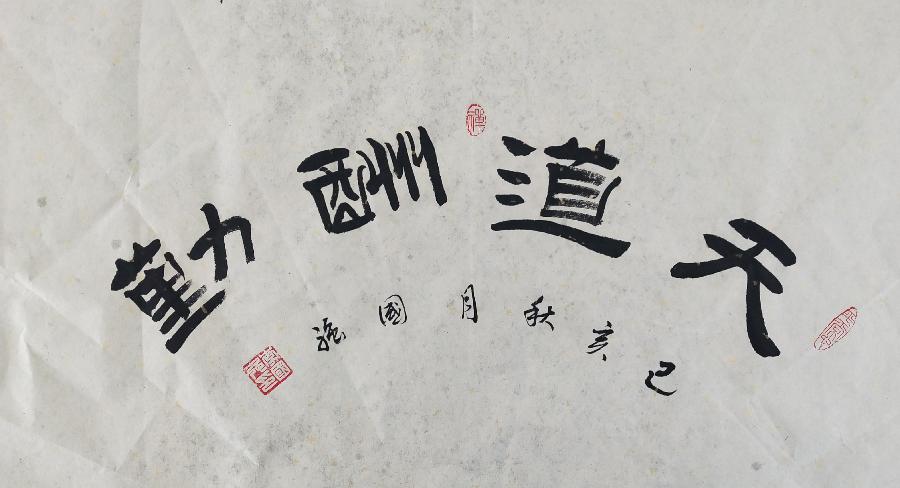 天道酬勤
己亥秋月國強